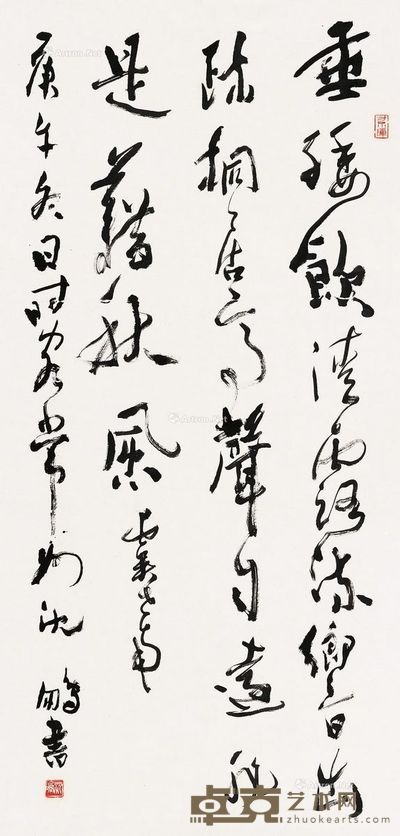 垂緌飲清露流響出
疏桐居高聲自遠非
是藉秋風 虞世南
庚午冬日時客常州沈鵬書
卓克艺术网
www.zhuokearts.com